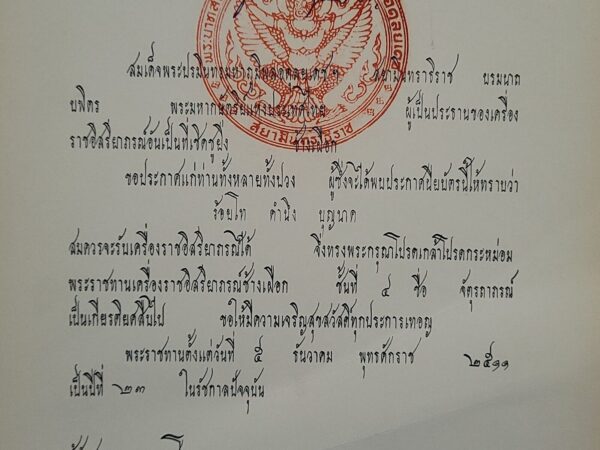 สมเด็จพระปรมินทรมหาภูมิพลอดุลยเดช ฯ สยามินทราธิราช บรมนาถ
บพิตร พระมหากษัตริย์แห่งประเทศไทย ผู้เป็นประธานของเครื่อง
ราชอิสริยาภรณ์อันเป็นที่เชิดชูยิ่ง ช้างเผือก
สยามินทราธิราช
ขอประกาศแก่ท่านทั้งหลายทั้งปวง ผู้ซึ่งจะได้พบประกาศนียบัตรนี้ให้ทราบว่า
ร้อยโท คำนึง บุญนาค
สมควรจะรับเครื่องราชอิสริยาภรณ์ได้ จึ่งทรงพระกรุณาโปรดเกล้าโปรดกระหม่อม
พระราชทานเครื่องราชอิสริยาภรณ์ช้างเผือก ชั้นที่ ๔ ชื่อ จัตุรถาภรณ์
เป็นเกียรติยศสืบไป ขอให้มีความเจริญสุขสวัสดิ์ทุกประการเทอญ
พระราชทานตั้งแต่วันที่ ๕ ธันวาคม พุทธศักราช ๒๕๑๑
เป็นปีที่ ๒๓ ในรัชกาลปัจจุบัน